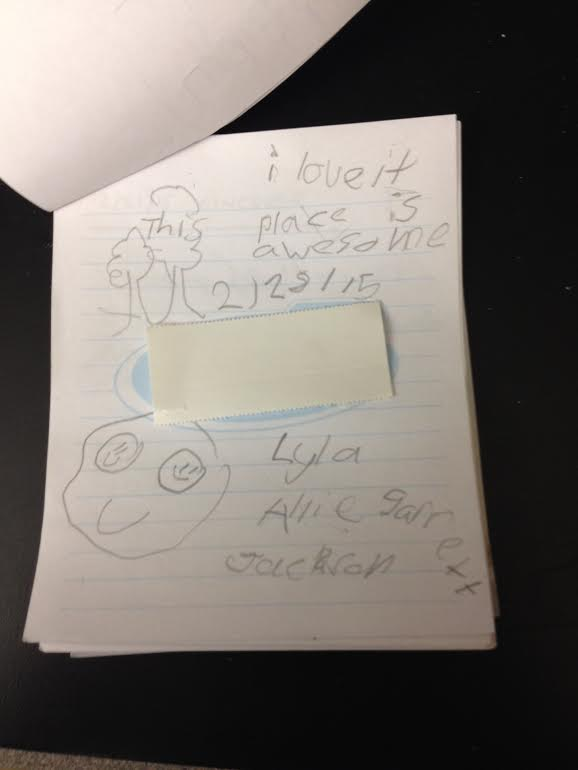 i love it
This place is
awesome
2/28/15
Lyla
Allie
Jackson